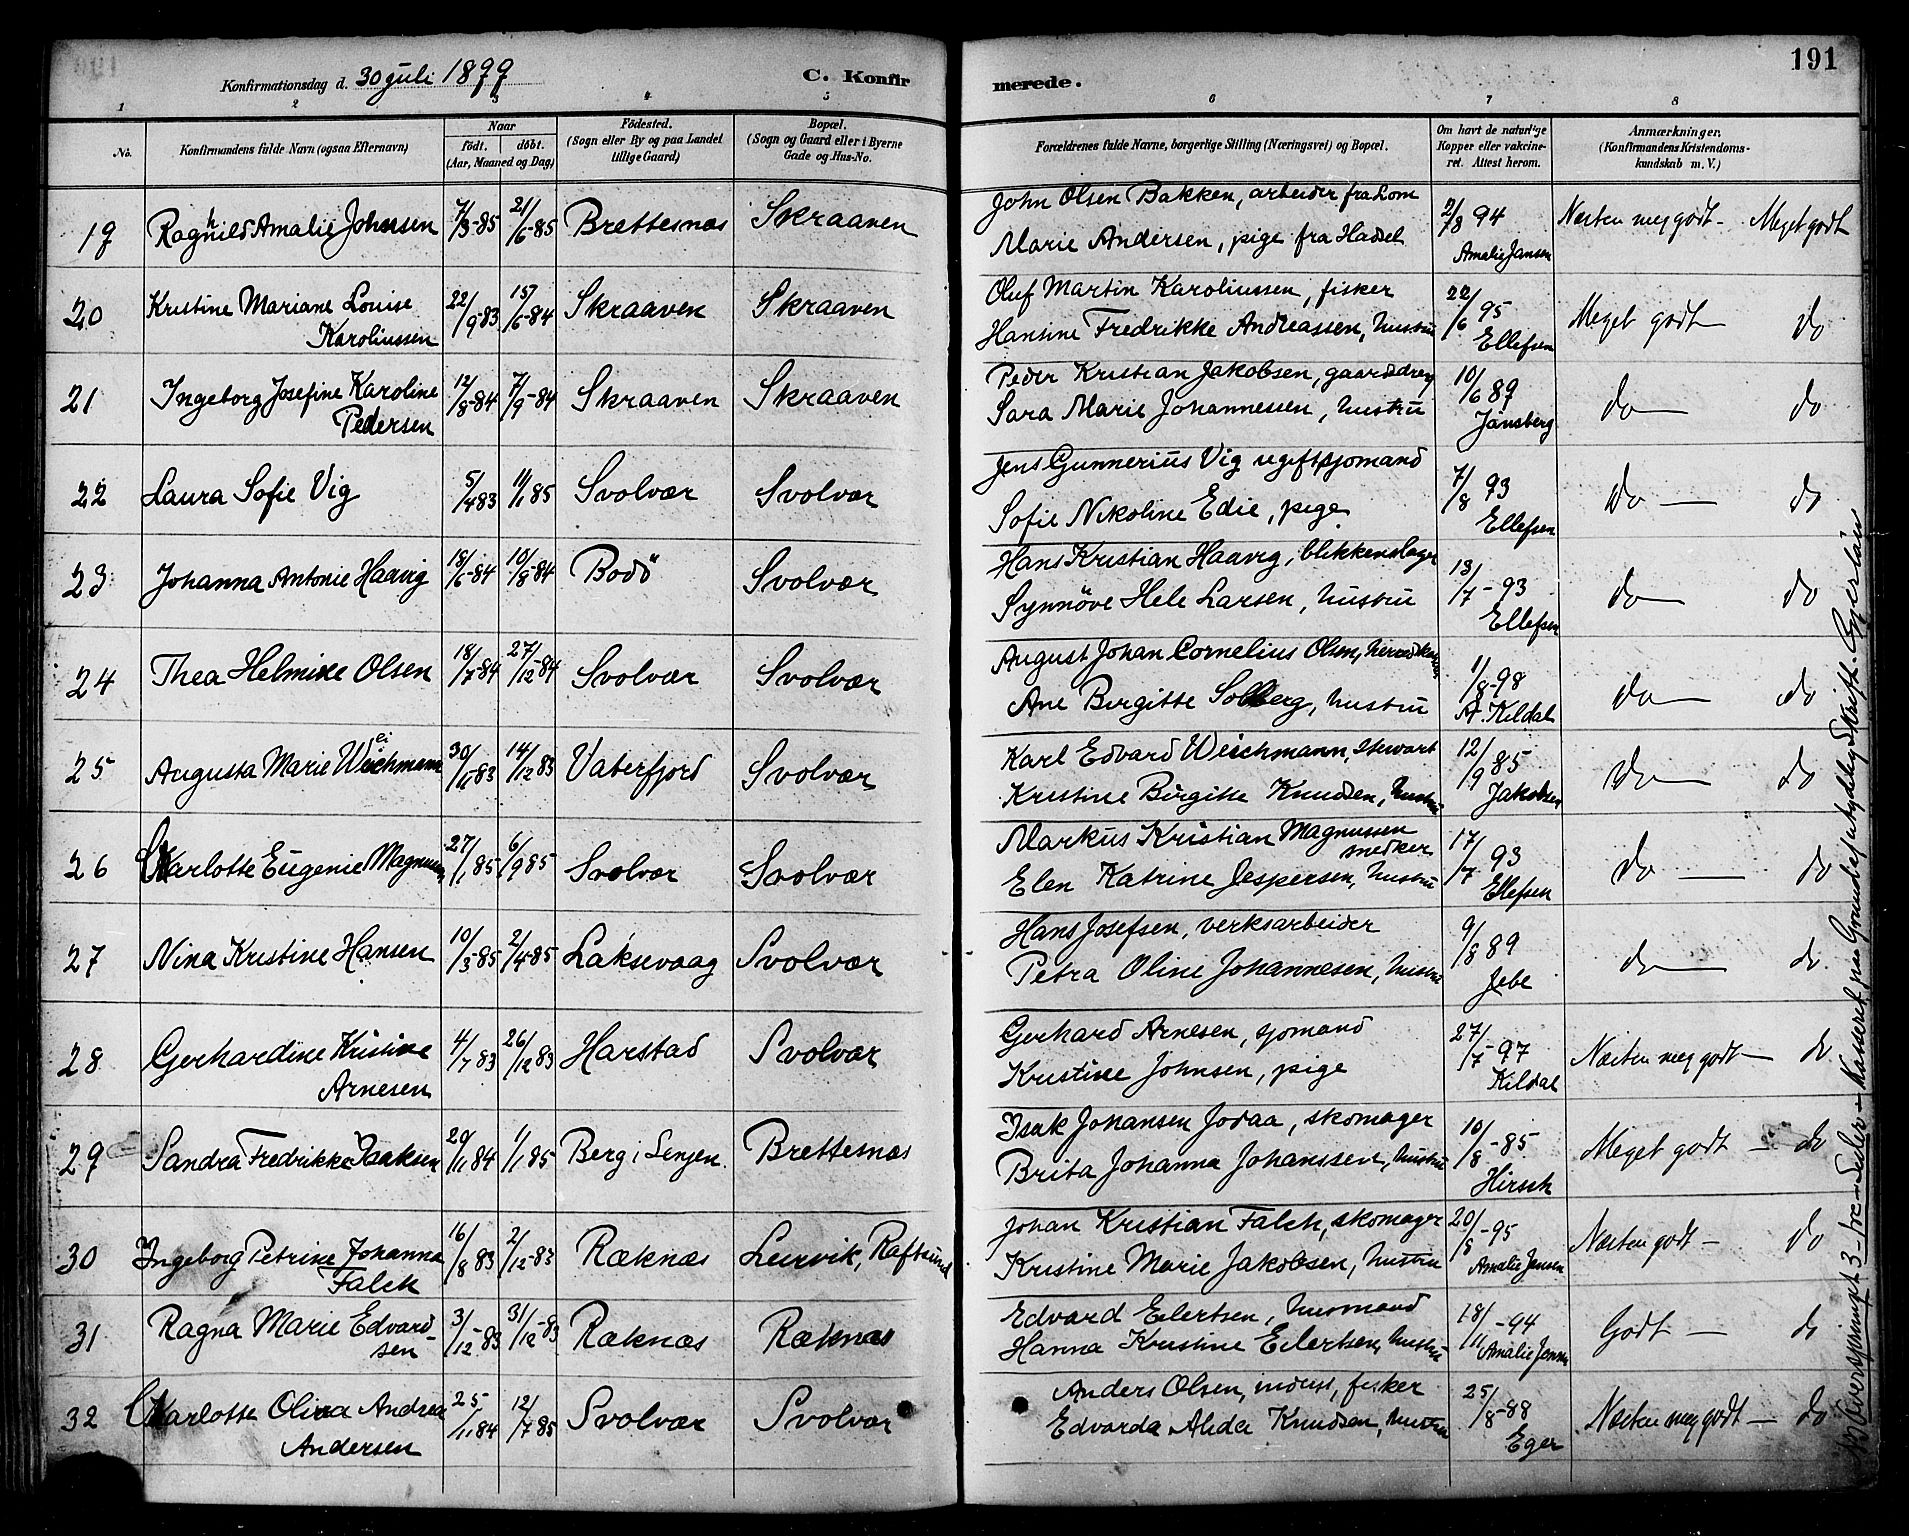 191
Konfirmationsdag d. 30 Juli 1899
C. Konfirmerede.
1 2 3 4 5 6 7 8
No. Konfirmandens fulde Navn (ogsaa Efternavn) Naar födt. döbt. (Aar, Maaned og Dag) Födested. (Sogn eller By og paa Landet tillige Gaard) Bopæl. (Sogn og Gaard eller i Byerne Gade og Hus-No. Forældrenes fulde Navne, borgerlige Stilling (Næringsvei) og Bopæl. Om havt de naturlige Kopper eller vakcineret. Attest herom. Anmærkninger. (Konfirmandens Kristendomskundskab m. V.)
19 Ragnhild Amalie Johnsen 7/3-85 21/6-85 Brettesnæs Skraaven John Olsen Bakken, arbeider fra Lom 2/8 94 Næsten meg godt - Meget godt
Marie Andersen, pige fra Hadsel Amalie Jansen
20 Kristine Mariane Louise 22/9-83 15/6-84 Skraaven Skraaven Oluf Martin Karoliussen, fisker 22/6 95 Meget godt do
Karoliussen Hansine Fredrikke Andreassen, hustru Ellefsen
21 Ingeborg Josefine Karoline 12/8-84 7/9-84 Skraaven Skraaven Peder Kristian Jakobsen, gaardbdrug 10/6 89 do do
Pedersen Sara Marie Johannessen, hustru Jönsberg
22 Laura Sofie Vig 5/4 83 11/1 85 Svolvær Svolvær Jens Gunnerius Vig ugift sjomand 7/8 93 do do
Sofie Nikoline Edie, pige Ellefsen
23 Johanna Antonie Haavig 18/6-84 10/8-84 Bodö Svolvær Hans Kristian Haavig, blikkenslager 13/7-93 do do
Synnöve Hele Larsen, hustru Ellefsen
24 Thea Helmine Olsen 18/7-84 27/12-84 Svolvær Svolvær August Johan Cornelius Olsen, 1/8-98 do do
Ane Birgitte Solberg, hustru A. Kildal
25 Augusta Marie Weichmann 30/11 83 14/12 83 Vaterfjord Svolvær Karl Edvard Weichmann, stewart 12/9 85 do do
Kristine Birgitte Knudsen, hustru Jakobsen
26 Charlotte Eugenie Magnussen 27/1 85 6/9 85 Svolvær Svolvær Markus Kristian Magnussen 17/7 93 do do
snedker
Elen Katrine Jespersen, hustru Ellefsen
27 Nina Kristine Hansen 10/3-85 2/4-85 Laksevaag Svolvær Hans Josefsen, verksarbeider 9/8 89 do do
Petra Oline Johannesen, hustru Jebe
28 Gerhardine Kristine 4/7 83 26/12 83 Harstad Svolvær Gerhard Arnesen, sjomand 27/7-97 Næsten meg godt - do
Arnesen Kristine Johnsen, pige Kildal
29 Sandra Fredrikke Isaksen 20/11 84 1/1 85 Berg i Senjen Brettesnæs Isak Johansen Jodaa, skomager 10/8-85 Meget godt - do
Brita Johanna Johanssen, hustru Hirsch
30 Ingeborg Petrine Johanna 16/8 83 2/12-83 Ræknæs Lurvik, Raftsund Johan Kristian Falch, skomager 20/8-95 Næsten godt - do
Falch Kristine Marie Jakobsen, hustru Amalie Jansen
31 Ragna Marie Edvard- 3/12-83 31/12-83 Ræknæs Ræknæs Edvard Eilertsen, husmand 18/11-94 Godt - do
sen Hanna Kristine Eilertsen, hustru Amalie Jansen
32 Charlotte Olina Andrea 25/11 84 12/7 85 Svolvær Svolvær Anders Olsen, inderst, fisker 25/8-88 Næsten meg godt - do
Andersen Edvarda Alida Knudsen, hustru Eger
NB Oversprunget 3 - tre - Sider - Kasseret paa Grund af utydelig Skrift. Gjerløw